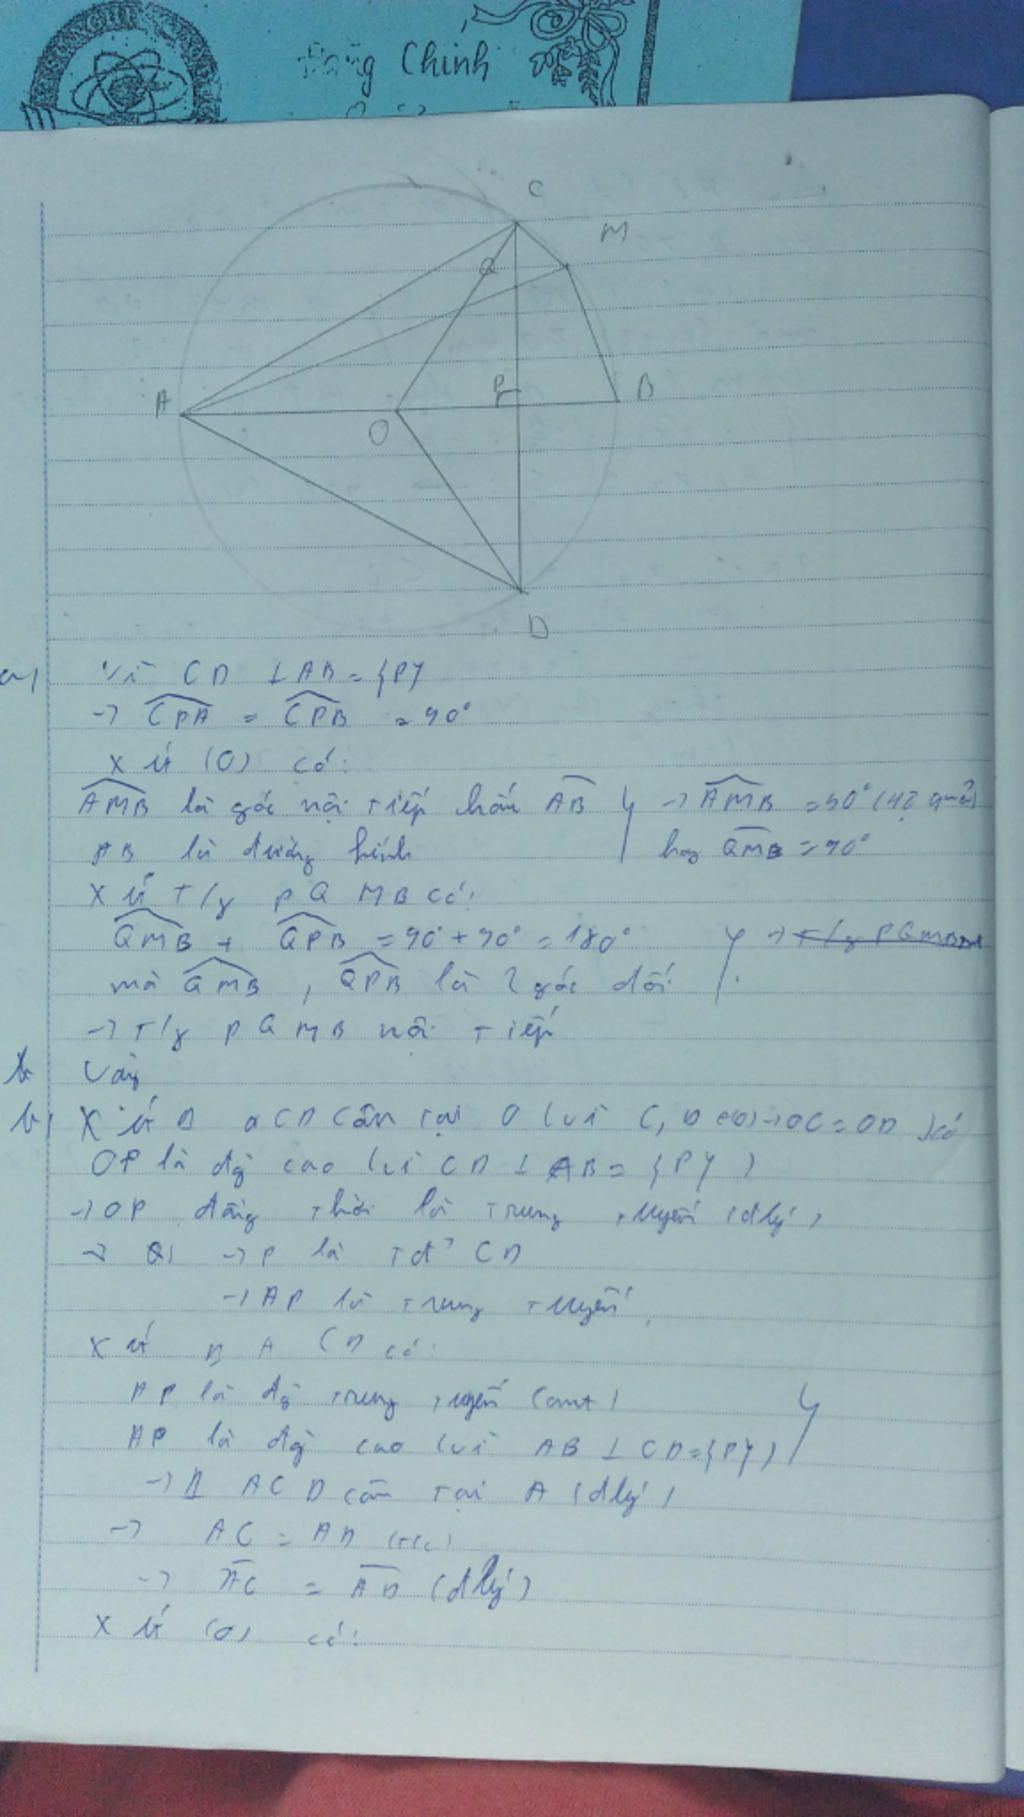 Đăng Chính
C
M
Q
A
P
B
O
D
a) Vì CD ⊥ AB = {P}
→ CPA = CPB = 90°
Xét (O) có:
AMB là góc nội tiếp chắn AB } → AMB = 90° (hệ quả)
AB là đường kính hay QMB = 90°
Xét T/g PQMB có:
QMB + QPB = 90° + 90° = 180° } → T/g PQMB
mà QMB, QPB là 2 góc đối
→ T/g PQMB nội tiếp
b Vậy
b) Xét Δ OCD cân tại O (vì C, D ∈ (O) → OC = OD) có
OP là đg cao (vì CD ⊥ AB = {P})
→ OP đồng thời là trung tuyến (đlý)
→ P là tđ CD
→ AP là trung tuyến
Xét Δ ACD có:
AP là đg trung tuyến (cmt) }
AP là đg cao (vì AB ⊥ CD = {P})
→ Δ ACD cân tại A (đlý)
→ AC = AD (t/c)
→ AC = AD (đlý)
Xét (O) có: